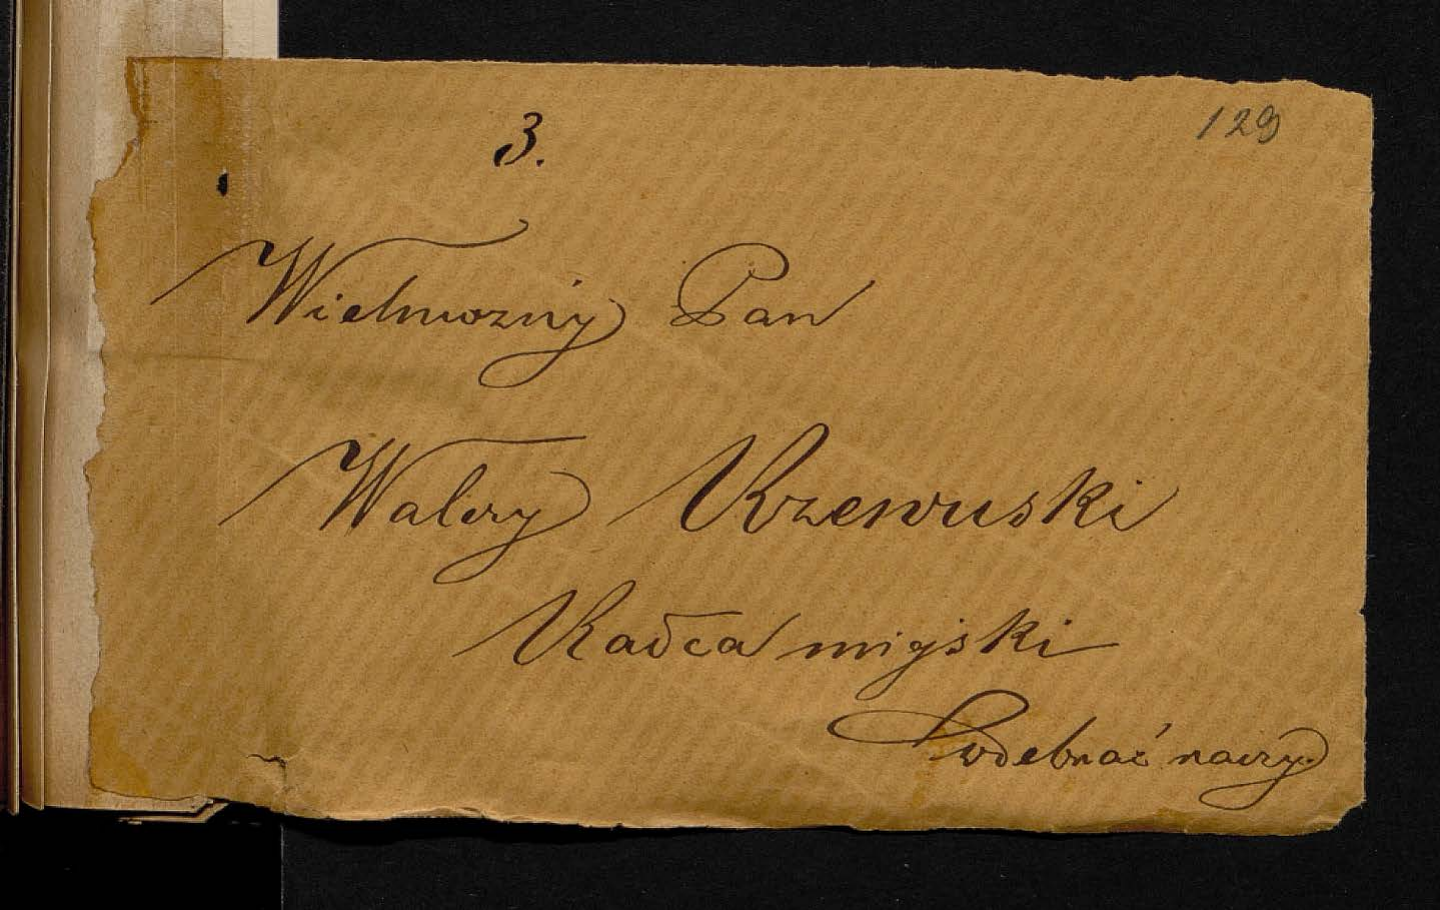 3.
129
Wielmożny Pan
Walery Rzewuski
Radca miejski
odebrać raczy.